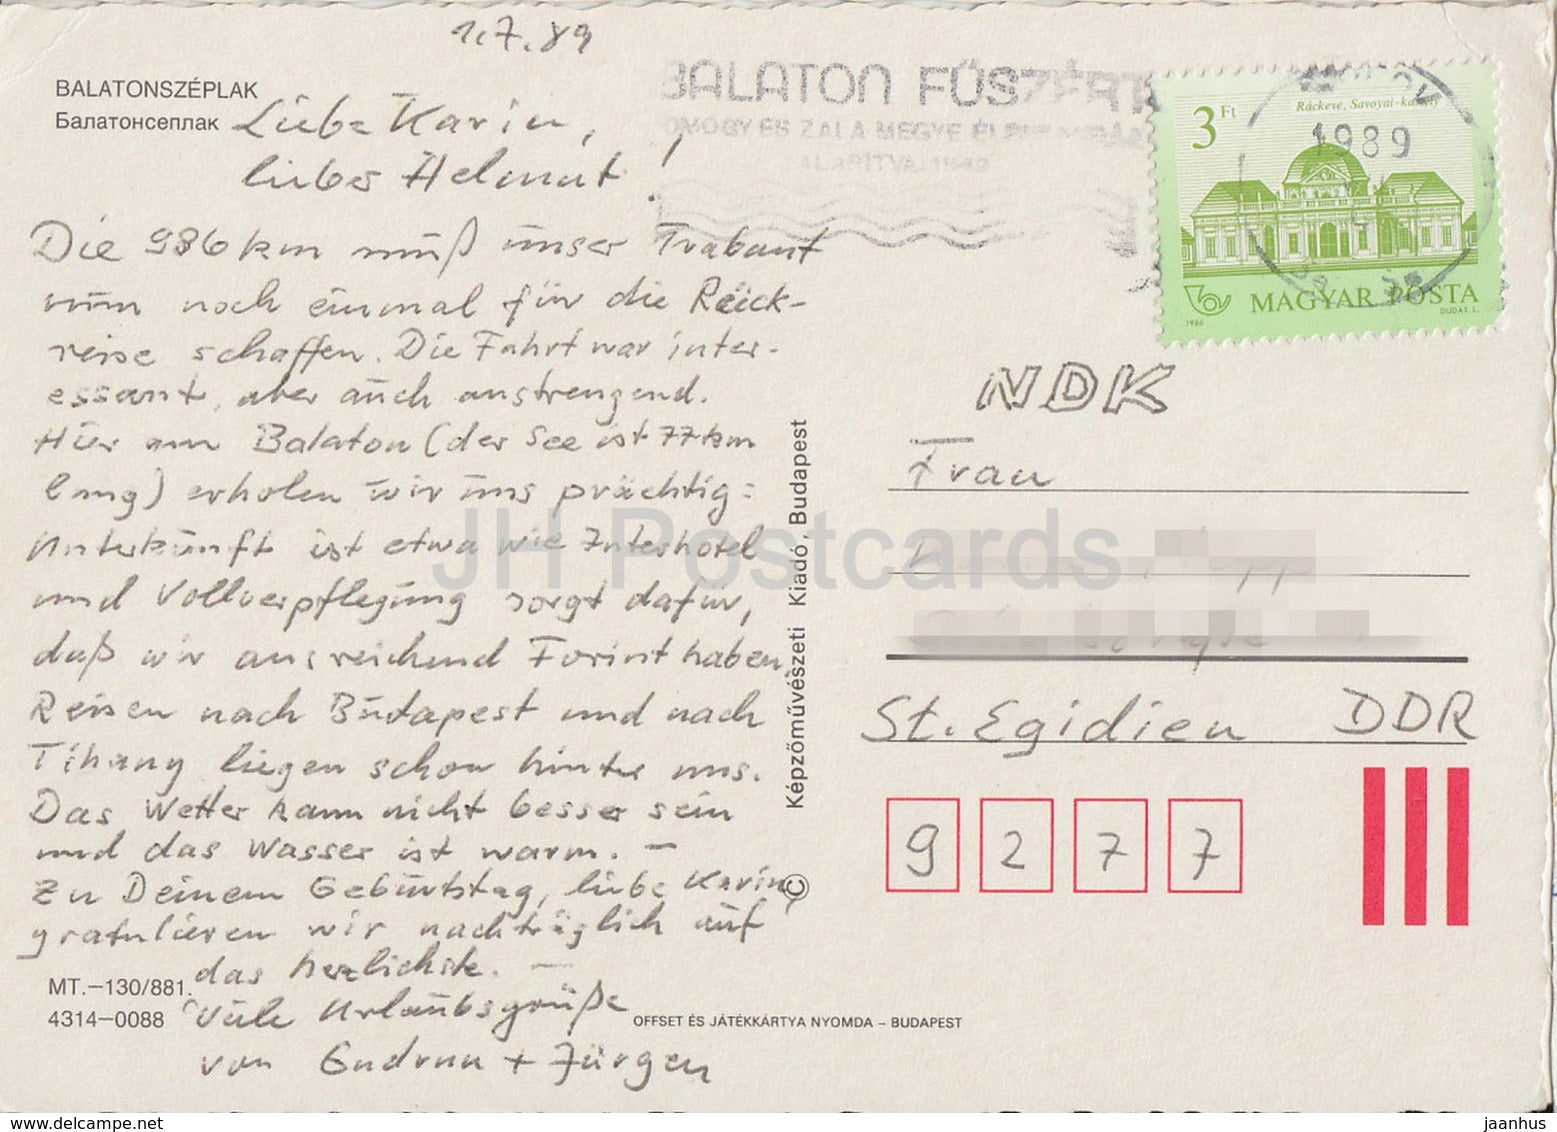 1.7.89
BALATONSZÉPLAK
Балатонсеплак
Liebe Karin,
lieber Helmut!
Die 986 km muß unser Trabant
nun noch einmal für die Rück-
reise schaffen. Die Fahrt war inter-
essant, aber auch anstrengend.
Hier am Balaton (der See ist 77 km
lang) erholen wir uns prächtig:
Unterkunft ist etwa wie Interhotel
und Vollverpflegung sorgt dafür,
daß wir ausreichend Forint haben.
Reisen nach Budapest und nach
Tihany liegen schon hinter uns.
Das Wetter kann nicht besser sein
und das Wasser ist warm. –
Zu Deinem Geburtstag, liebe Karin,
gratulieren wir nachträglich auf
das herzlichste. –
Viele Urlaubsgrüße
von Gudrun + Jürgen
MT.–130/881.
4314–0088
OFFSET ÉS JÁTÉKKÁRTYA NYOMDA – BUDAPEST
Képzőművészeti Kiadó, Budapest
©
BALATON FŰSZÉRT
SOMOGY ÉS ZALA MEGYE
ALAPÍTVA
3 Ft
Ráckeve, Savoyai-kastély
1989
MAGYAR POSTA
1986
DUDÁS L.
NDK
Frau
St. Egidien DDR
9 2 7 7
JH Postcards
www.delcampe.net
jaanhus